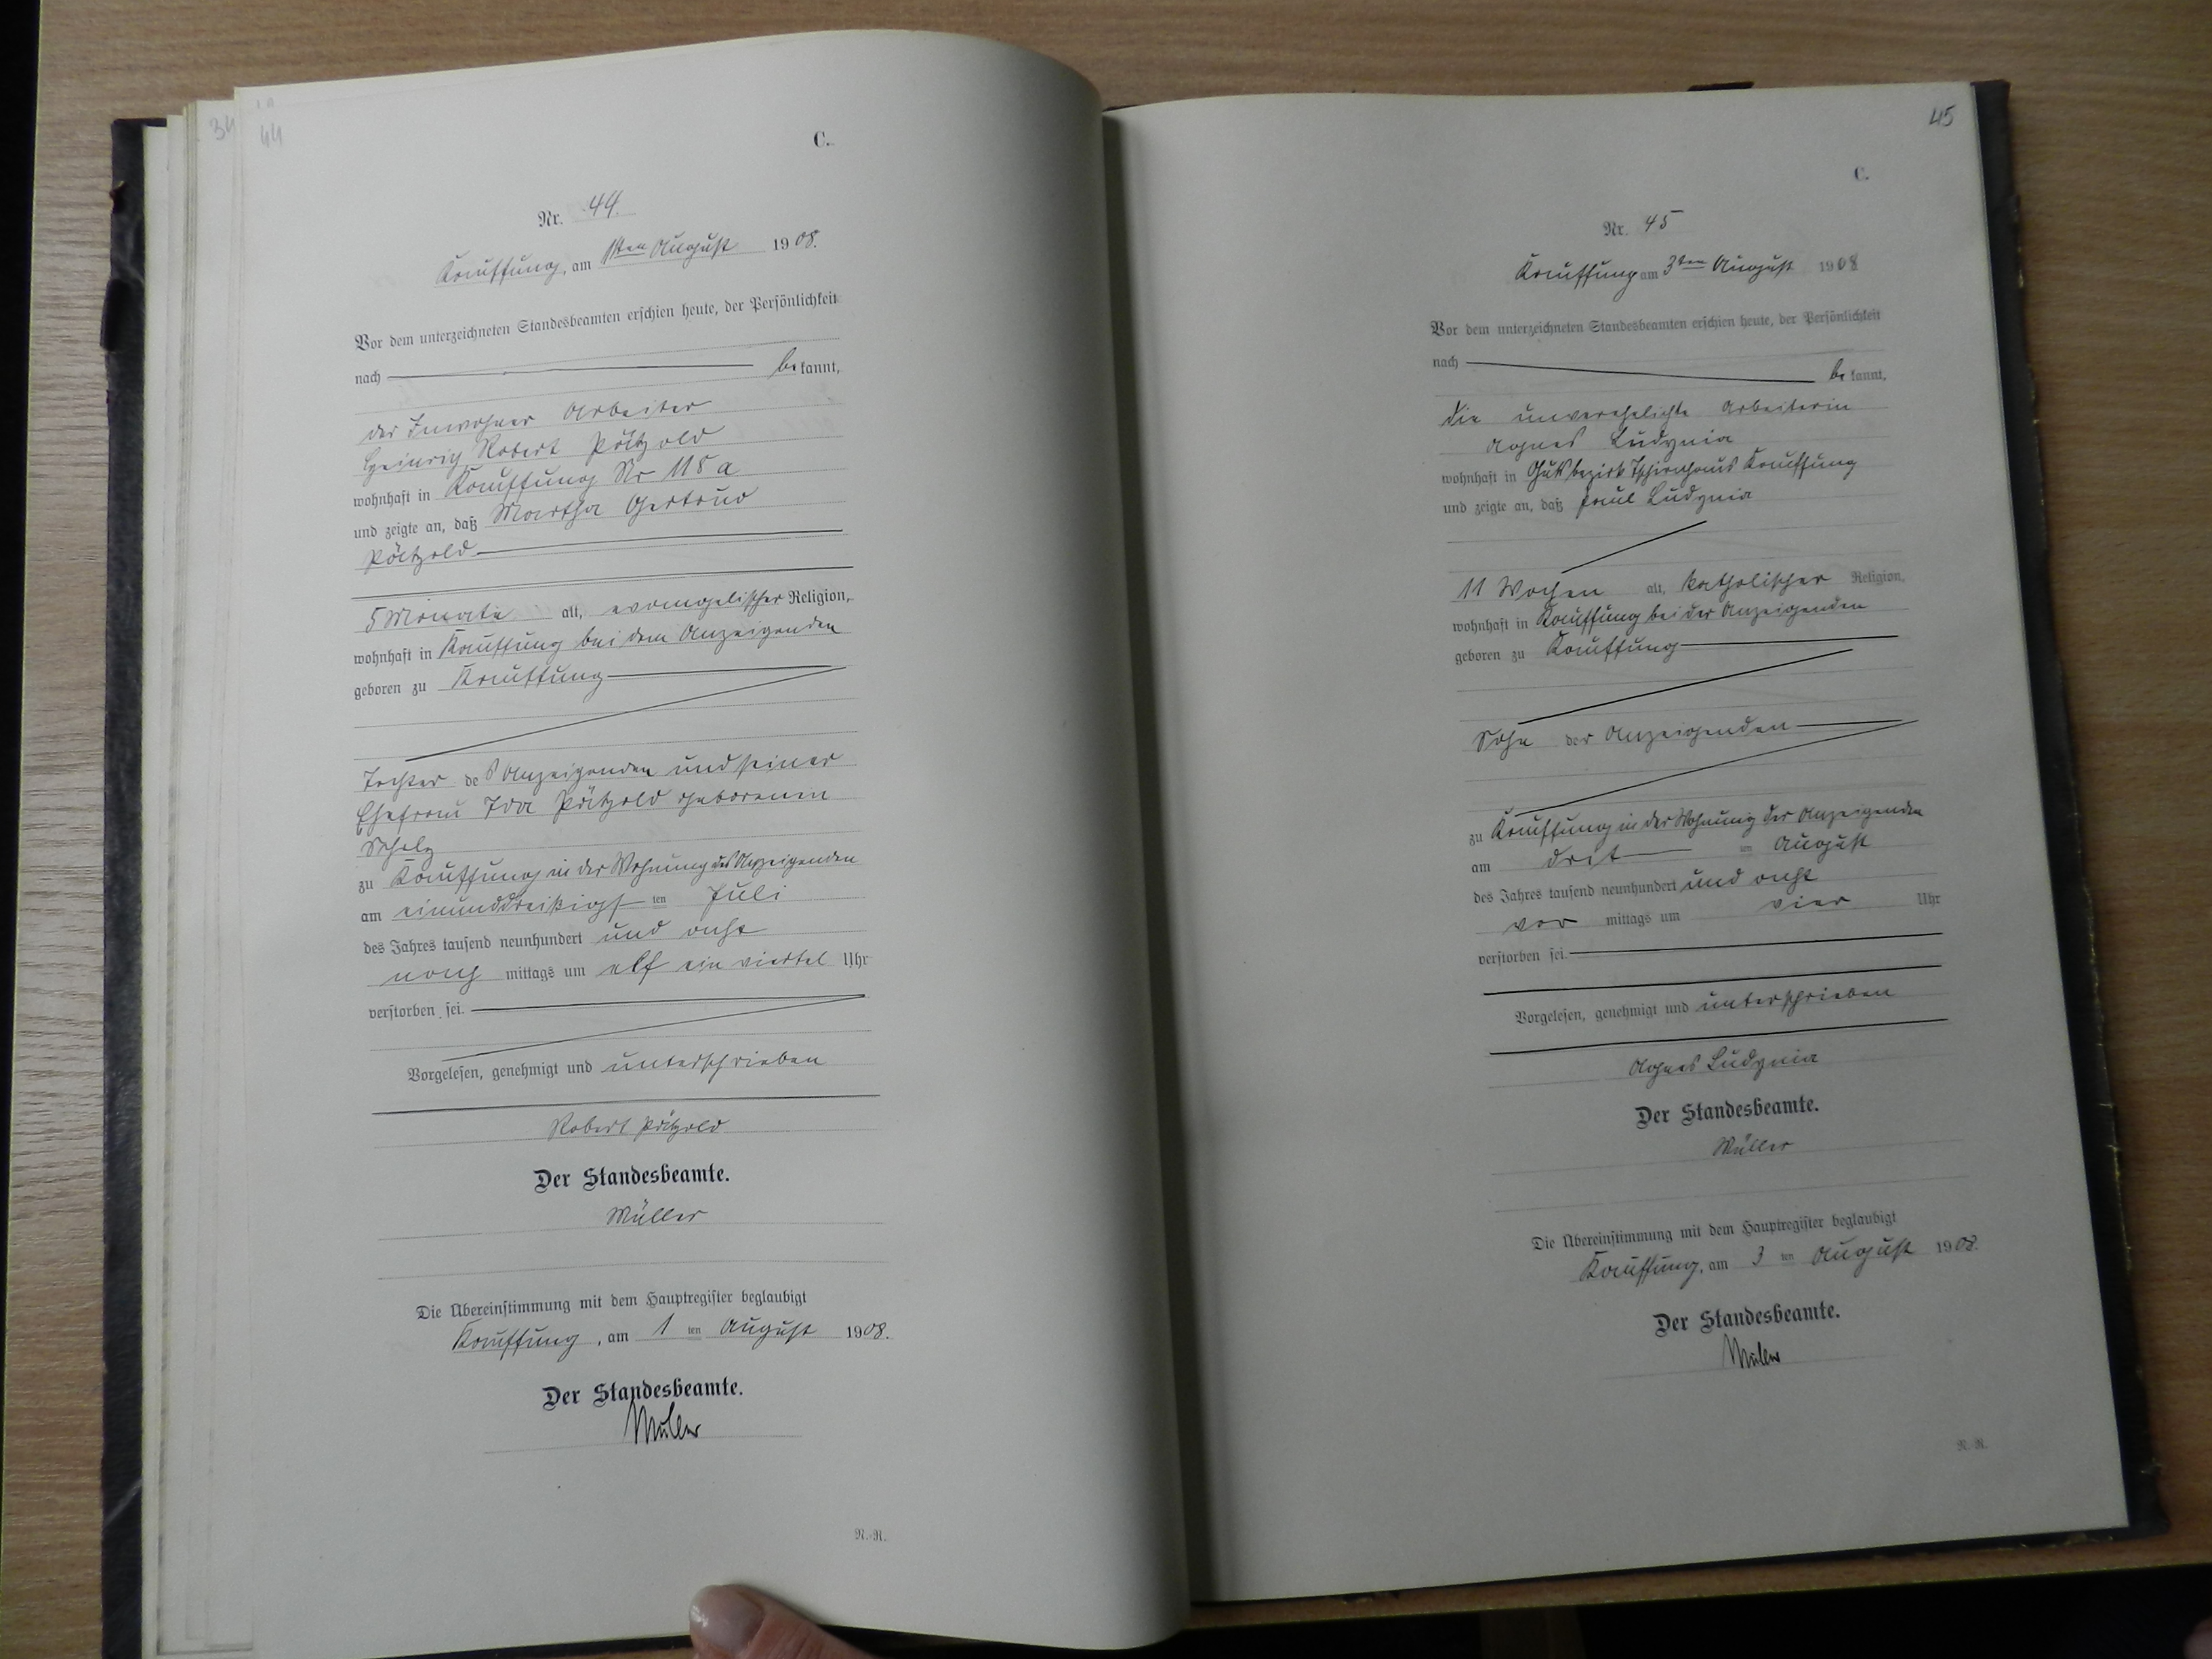 34
44
C.
Nr. 44.
Kauffung, am 1ten August 1908.
Vor dem unterzeichneten Standesbeamten erschien heute, der Persönlichkeit
nach be kannt,
der Inwohner Arbeiter
Heinrich Robert Pätzold
wohnhaft in Kauffung Nr 118 a
und zeigte an, daß Martha Gertrud
Pätzold
5 Monate alt, evangelischer Religion,
wohnhaft in Kauffung bei dem Anzeigenden
geboren zu Kauffung
Tochter des Anzeigenden und seiner
Ehefrau Ida Pätzold geborenen
Scholz
zu Kauffung in der Wohnung des Anzeigenden
am einunddreißigs ten Juli
des Jahres tausend neunhundert und acht
nach mittags um elf ein viertel Uhr
verstorben sei.
Vorgelesen, genehmigt und unterschrieben
Robert Pätzold
Der Standesbeamte.
Müller
Die Übereinstimmung mit dem Hauptregister beglaubigt
Kauffung, am 1 ten August 1908.
Der Standesbeamte.
Müller
N.-R.
45
C.
Nr. 45
Kauffung am 3ten August 1908
Vor dem unterzeichneten Standesbeamten erschien heute, der Persönlichkeit
nach be kannt,
die unverehelichte Arbeiterin
Agnes Ludynia
wohnhaft in Gutsbezirk Tschirnhaus Kauffung
und zeigte an, daß Paul Ludynia
11 Wochen alt, katholischer Religion,
wohnhaft in Kauffung bei der Anzeigenden
geboren zu Kauffung
Sohn der Anzeigenden
zu Kauffung in der Wohnung der Anzeigenden
am drit ten August
des Jahres tausend neunhundert und acht
vor mittags um vier Uhr
verstorben sei.
Vorgelesen, genehmigt und unterschrieben
Agnes Ludynia
Der Standesbeamte.
Müller
Die Übereinstimmung mit dem Hauptregister beglaubigt
Kauffung, am 3 ten August 1908.
Der Standesbeamte.
Müller
N.-R.